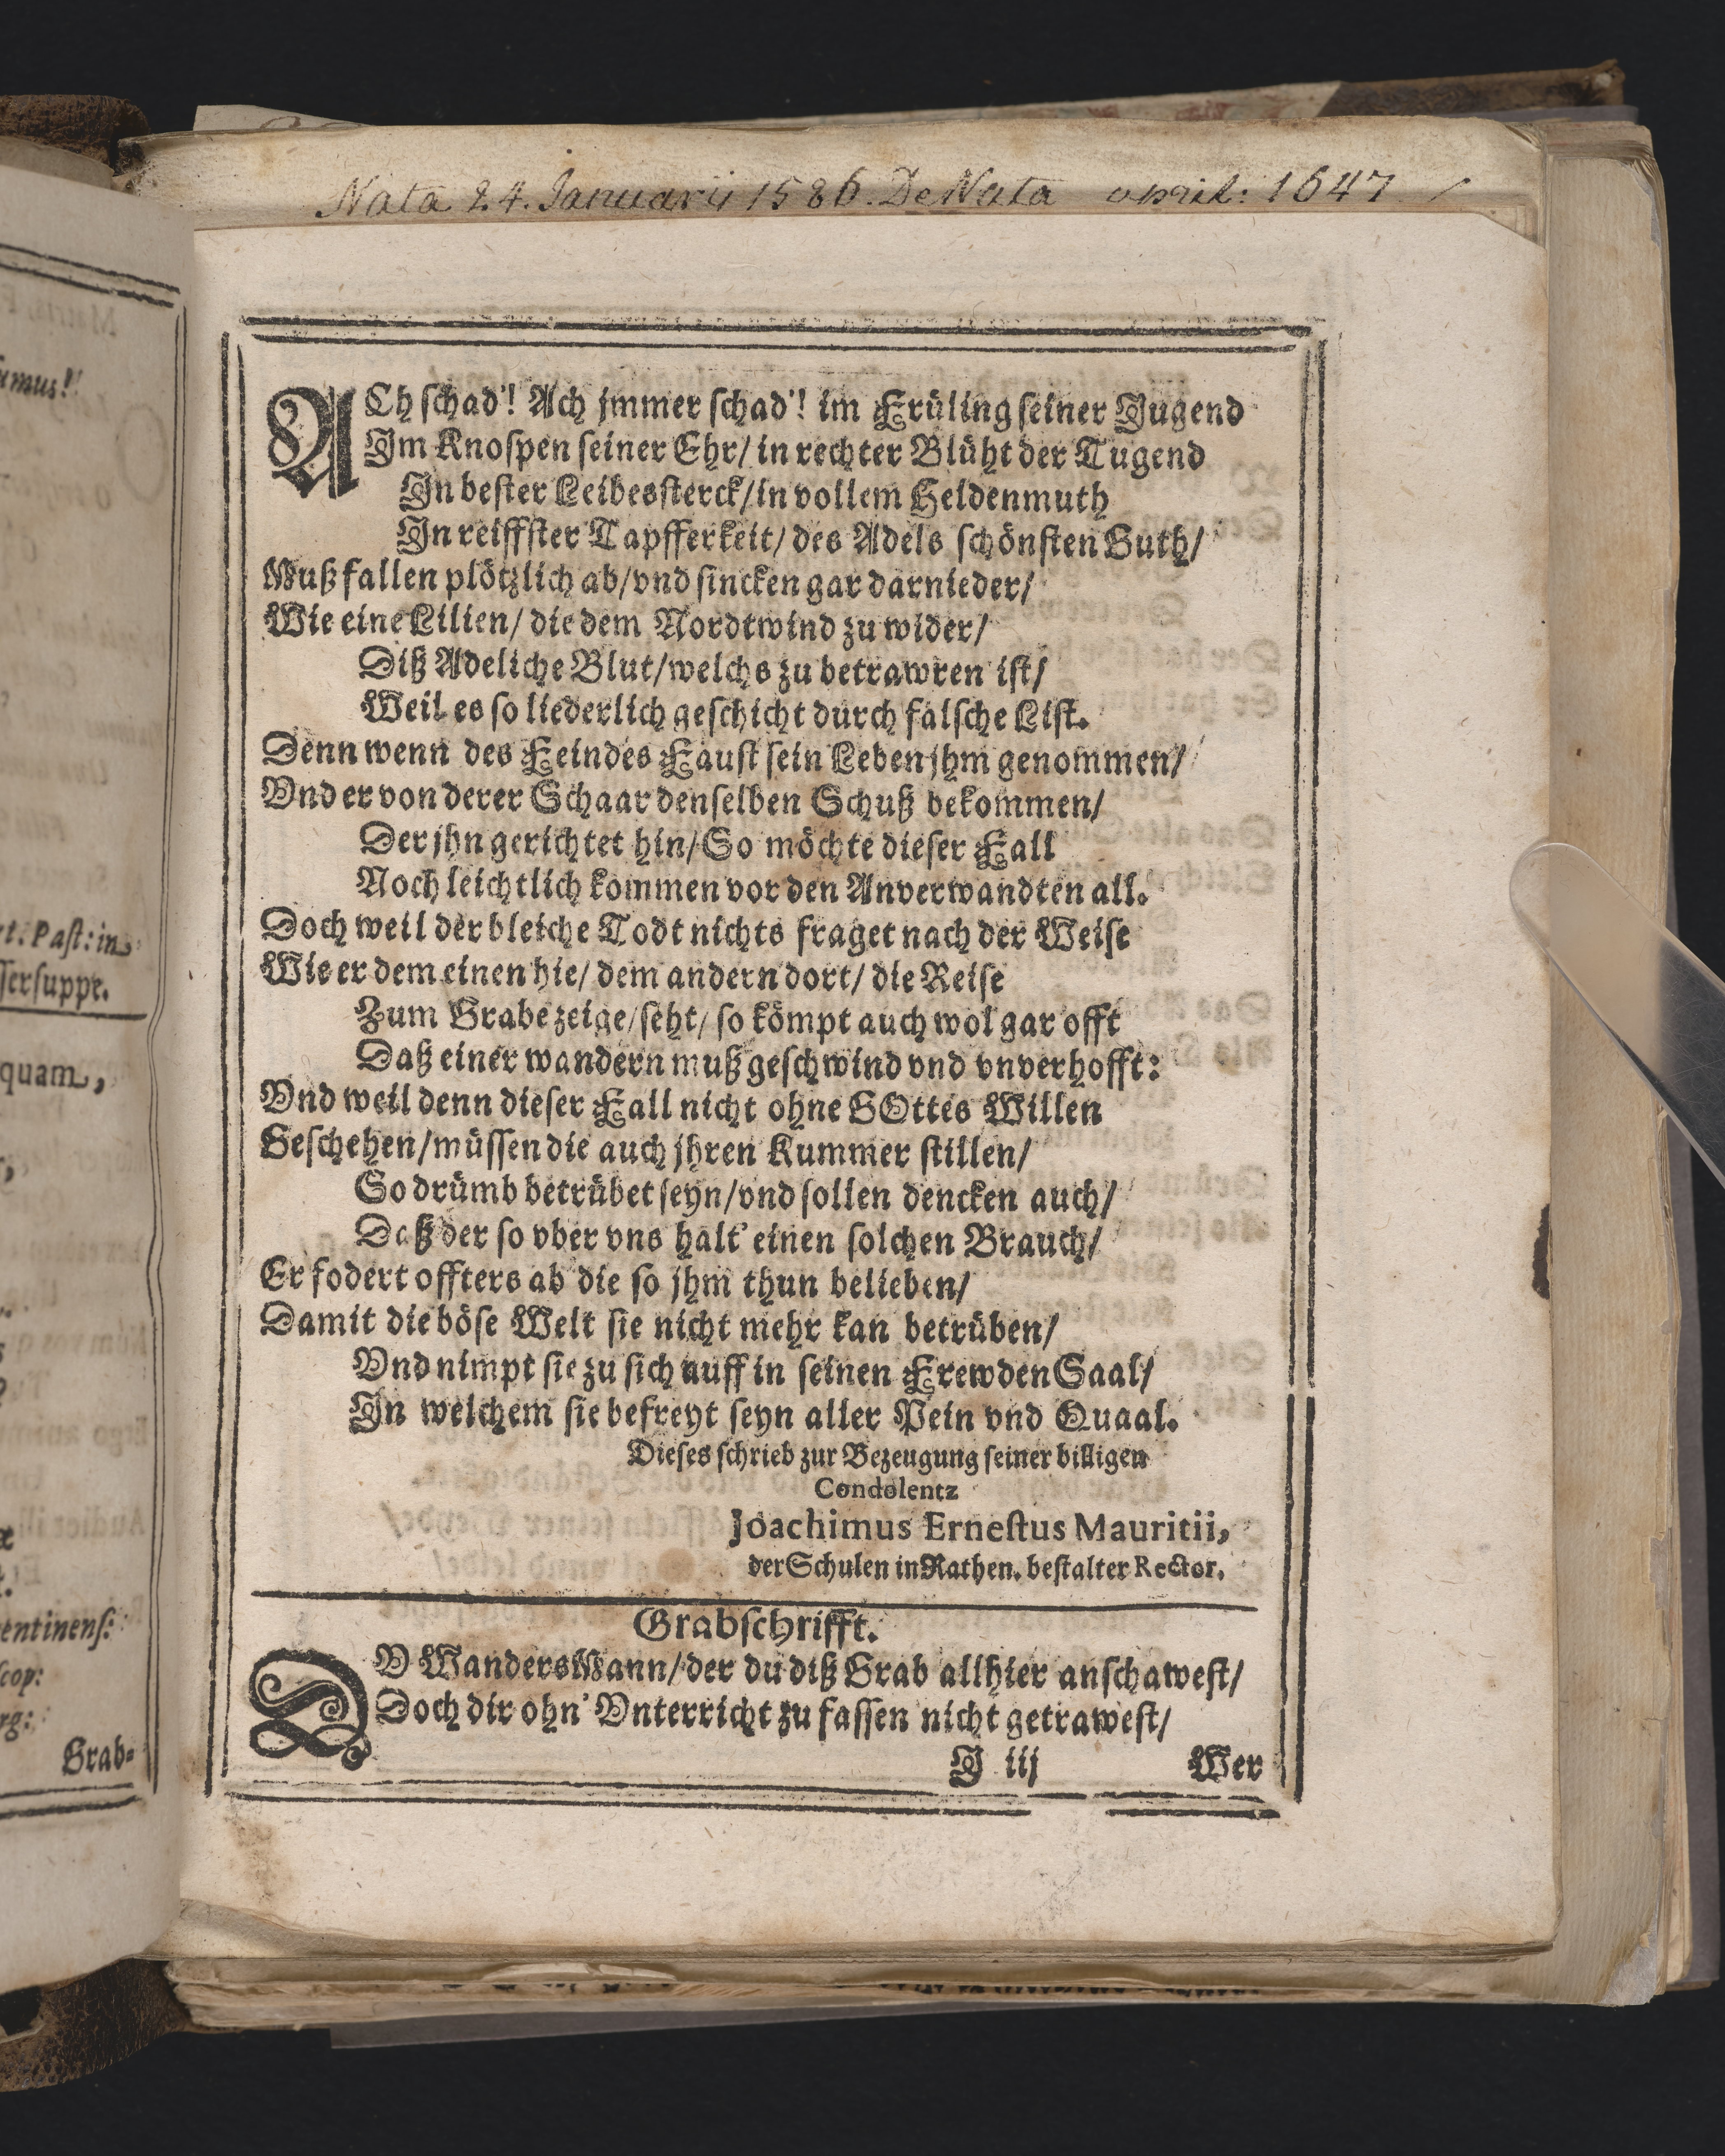 Nata 24. Januarii 1586. DeNata april: 1647
ACh schad'! Ach jmmer schad'! im Früling seiner Jugend
Im Knospen seiner Ehr/ in rechter Blüht der Tugend
In bester Leibessterck/ in vollem Heldenmuth
In reiffster Tapfferkeit/ des Adels schönsten Guth/
Muß fallen plötzlich ab/ vnd sincken gar darnieder/
Wie eine Lilien/ die dem Nordtwind zu wider/
Diß Adeliche Blut/ welchs zu betrawren ist/
Weil es so liederlich geschicht durch falsche List.
Denn wenn des Feindes Faust sein Leben jhm genommen/
Vnd er von derer Schaar denselben Schuß bekommen/
Der jhn gerichtet hin/ So möchte dieser Fall
Noch leichtlich kommen vor den Anverwandten all.
Doch weil der bleiche Todt nichts fraget nach der Weise
Wie er dem einen hie/ dem andern dort/ die Reise
Zum Grabe zeige/ seht/ so kömpt auch wol gar offt
Daß einer wandern muß geschwind vnd vnverhofft:
Vnd weil denn dieser Fall nicht ohne GOttes Willen
Geschehen/ müssen die auch jhren Kummer stillen/
So drümb betrübet seyn/ vnd sollen dencken auch/
Daß der so vber vns halt' einen solchen Brauch/
Er fodert offters ab die so jhm thun belieben/
Damit die böse Welt sie nicht mehr kan betrüben/
Vnd nimpt sie zu sich auff in seinen Frewden Saal/
In welchem sie befreyt seyn aller Pein vnd Quaal.
Dieses schrieb zur Bezeugung seiner billigen
Condolentz
Joachimus Ernestus Mauritii,
der Schulen in Rathen. bestalter Rector.
Grabschrifft.
DV WandersMann/ der du diß Grab allhier anschawest/
Doch dir ohn' Vnterricht zu fassen nicht getrawest/
J iij Wer
umus!
t. Past: in
ssersuppe.
quam,
entinens:
scop:
rg:
Grab-